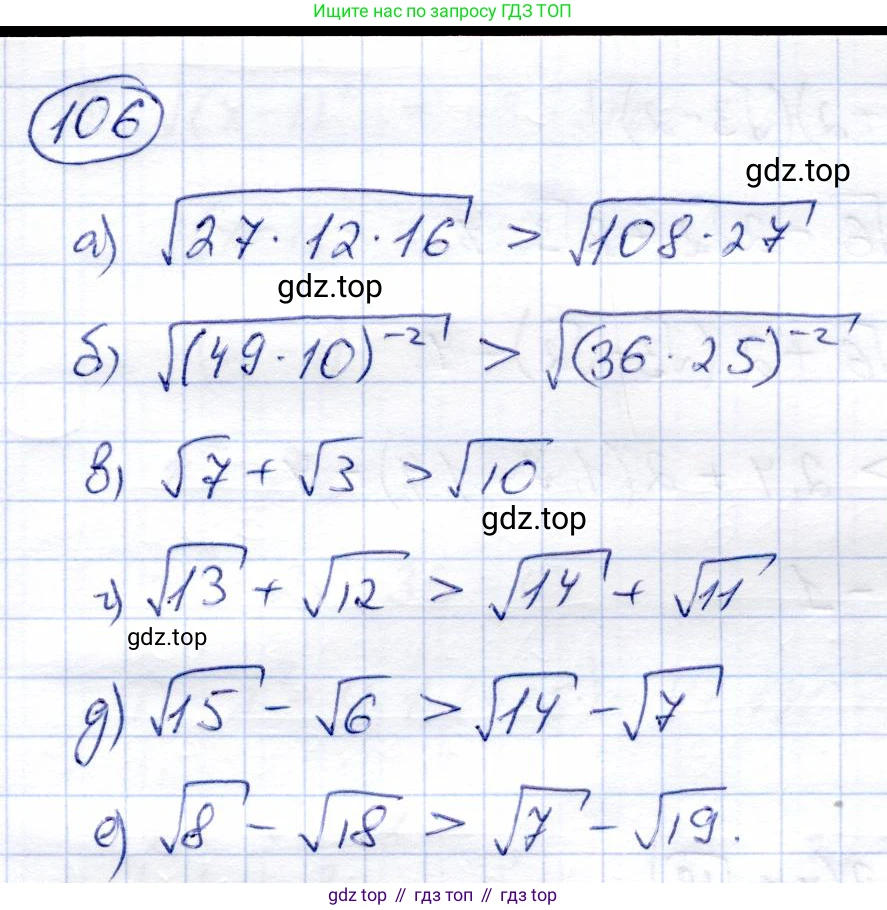 Ищите нас по запросу ГДЗ ТОП
106
gdz.top
а) √(27 · 12 · 16) > √(108 · 27)
gdz.top
б) √((49 · 10)⁻²) > √((36 · 25)⁻²)
в) √7 + √3 > √10
gdz.top
г) √13 + √12 > √14 + √11
gdz.top
д) √15 - √6 > √14 - √7
е) √8 - √18 > √7 - √19.
gdz top // гдз топ // gdz top